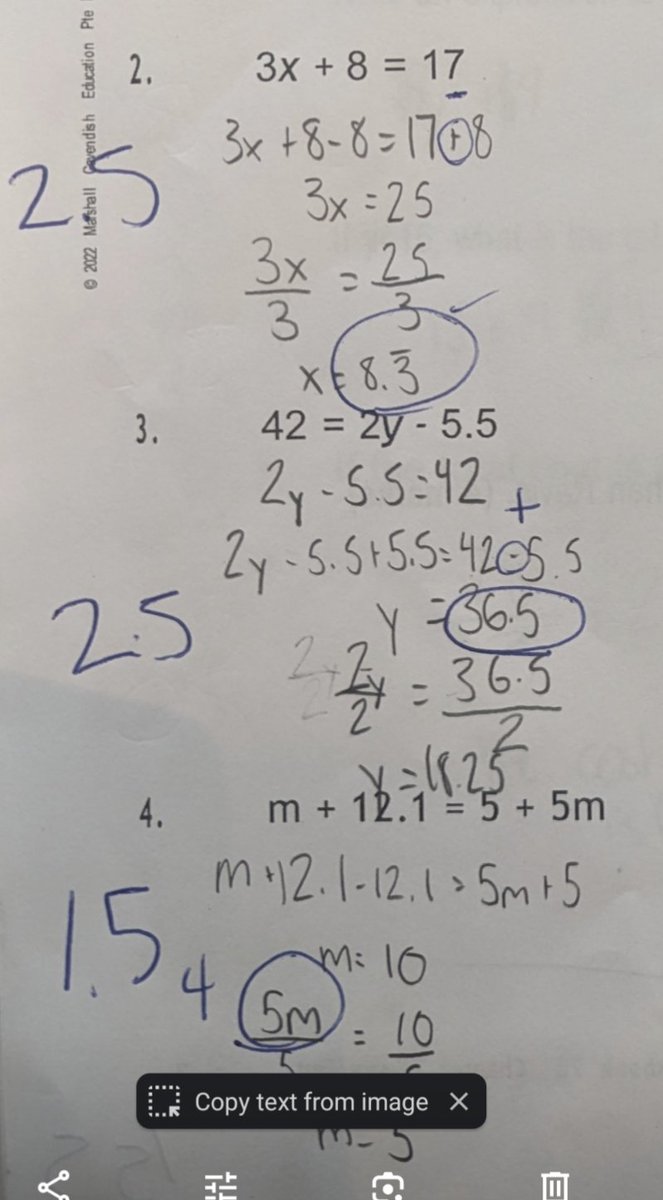 © 2022 Marshall Cavendish Education Pte
2. 3x + 8 = 17
3x + 8 - 8 = 17 + 8
2.5
3x = 25
3x/3 = 25/3
x = 8.3̅
3. 42 = 2y - 5.5
2y - 5.5 = 42
+
2y - 5.5 + 5.5 = 42 - 5.5
2.5
y = 36.5
2y/2 = 36.5/2
y = 18.25
4. m + 12.1 = 5 + 5m
m + 12.1 - 12.1 = 5m + 5
1.5
m = 10
4
5m/5 = 10
Copy text from image ×
m = 5